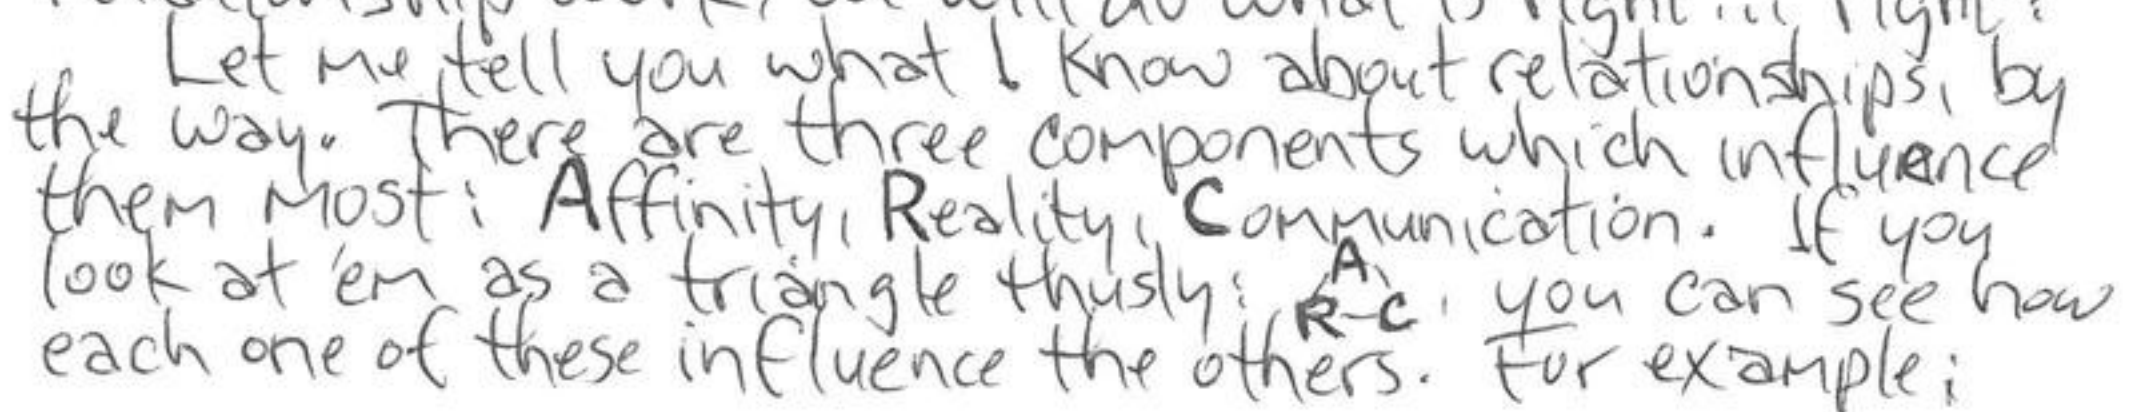 Let me tell you what I know about relationships, by
the way. There are three components which influence
them most: Affinity, Reality, Communication. If you
look at 'em as a triangle thusly: A R-C, you can see how
each one of these influence the others. For example;